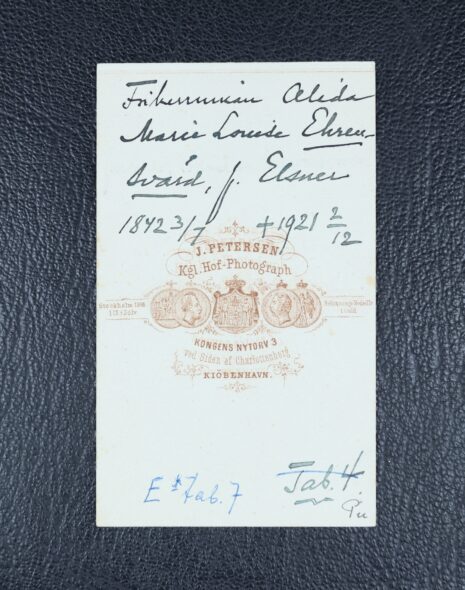 Friherrinnan Alida
Marie Louise Ehren-
svärd, f. Elsner
1842 3/7 +1921 2/12
J. PETERSEN
Kgl. Hof-Photograph
Stockholm 1866
KONGENS NYTORV 3
ved Siden af Charlottenborg
KIÖBENHAVN.
E Tab. 7
Tab. H.